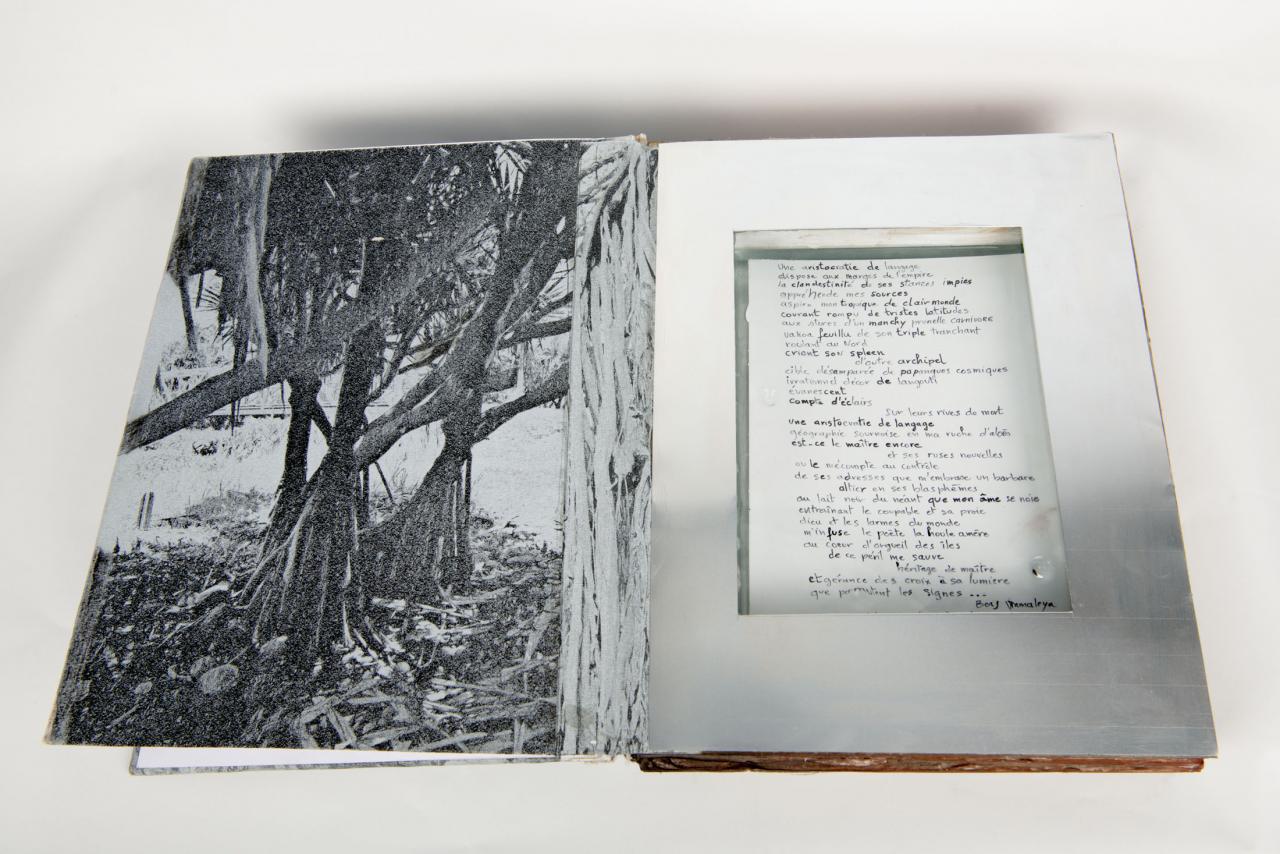 Une aristocratie de langage
dispose aux marges de l'empire
la clandestinité de ses stances impies
appréhende mes sources
aspire mon tropique de clair monde
courant rompu de tristes latitudes
aux stores d'un manchy prunelle carnivore
vakoa feuillu de son triple tranchant
roulant au Nord
crient son spleen
d'outre archipel
cible désemparée de papangues cosmiques
irrationnel décor de langouti
évanescent
compte d'éclairs
sur leurs rives de mort
une aristocratie de langage
géographie sournoise en ma ruche d'aloès
est-ce le maître encore
et ses ruses nouvelles
ou le mécompte au contrôle
de ses adresses que m'embrase un barbare
altier en ses blasphèmes
au lait noir du néant que mon âme se noie
entraînant le coupable et sa proie
dieu et les larmes du monde
m'infuse le poète la houle amère
au coeur d'orgueil des îles
de ce péril me sauve
héritage de maître
et gérance des croix à sa lumière
que les signes ...
Boris Gamaleya